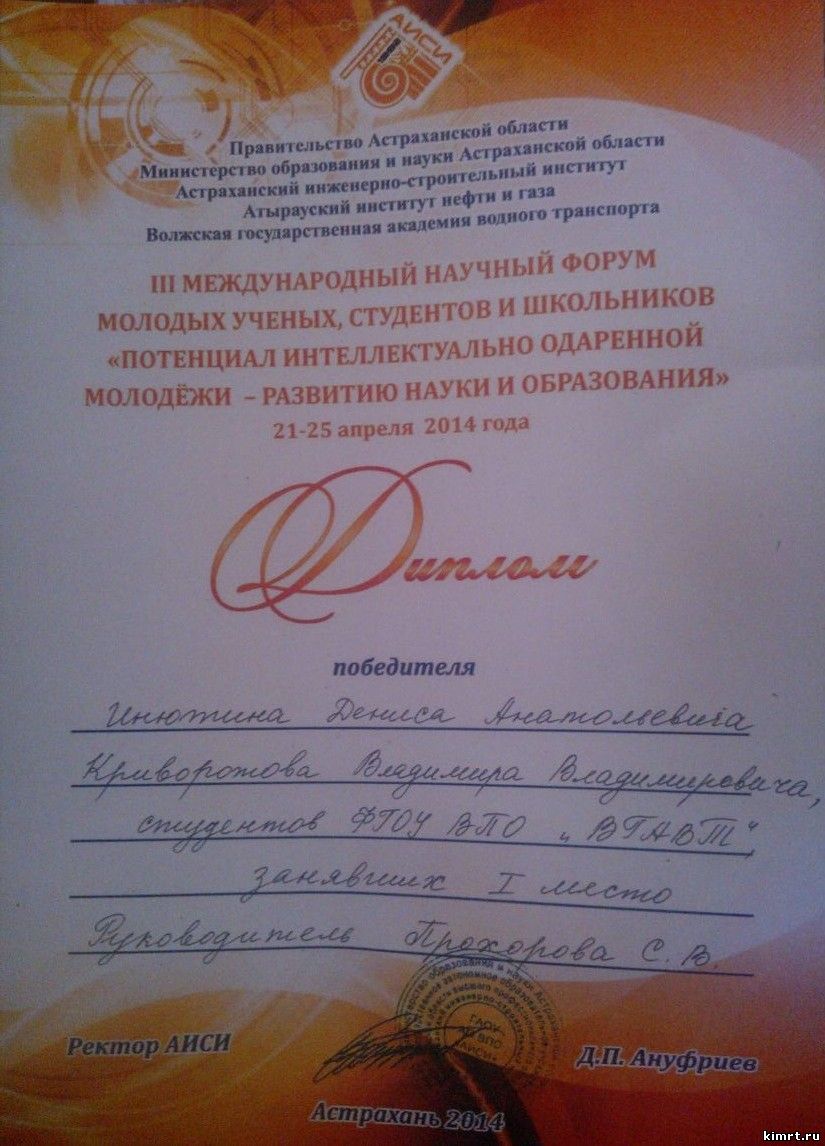 АИСИ
Правительство Астраханской области
Министерство образования и науки Астраханской области
Астраханский инженерно-строительный институт
Атырауский институт нефти и газа
Волжская государственная академия водного транспорта
III МЕЖДУНАРОДНЫЙ НАУЧНЫЙ ФОРУМ
МОЛОДЫХ УЧЕНЫХ, СТУДЕНТОВ И ШКОЛЬНИКОВ
«ПОТЕНЦИАЛ ИНТЕЛЛЕКТУАЛЬНО ОДАРЕННОЙ
МОЛОДЁЖИ – РАЗВИТИЮ НАУКИ И ОБРАЗОВАНИЯ»
21-25 апреля 2014 года
Диплом
победителя
Инютина Дениса Анатольевича
Криворотова Владимира Владимировича,
студентов ФГОУ ВПО „ВГАВТ"
занявших I место
Руководитель Прохорова С. В.
ГАОУ
АО ВПО
«АИСИ»
Ректор АИСИ
Д.П. Ануфриев
Астрахань 2014
kimrt.ru